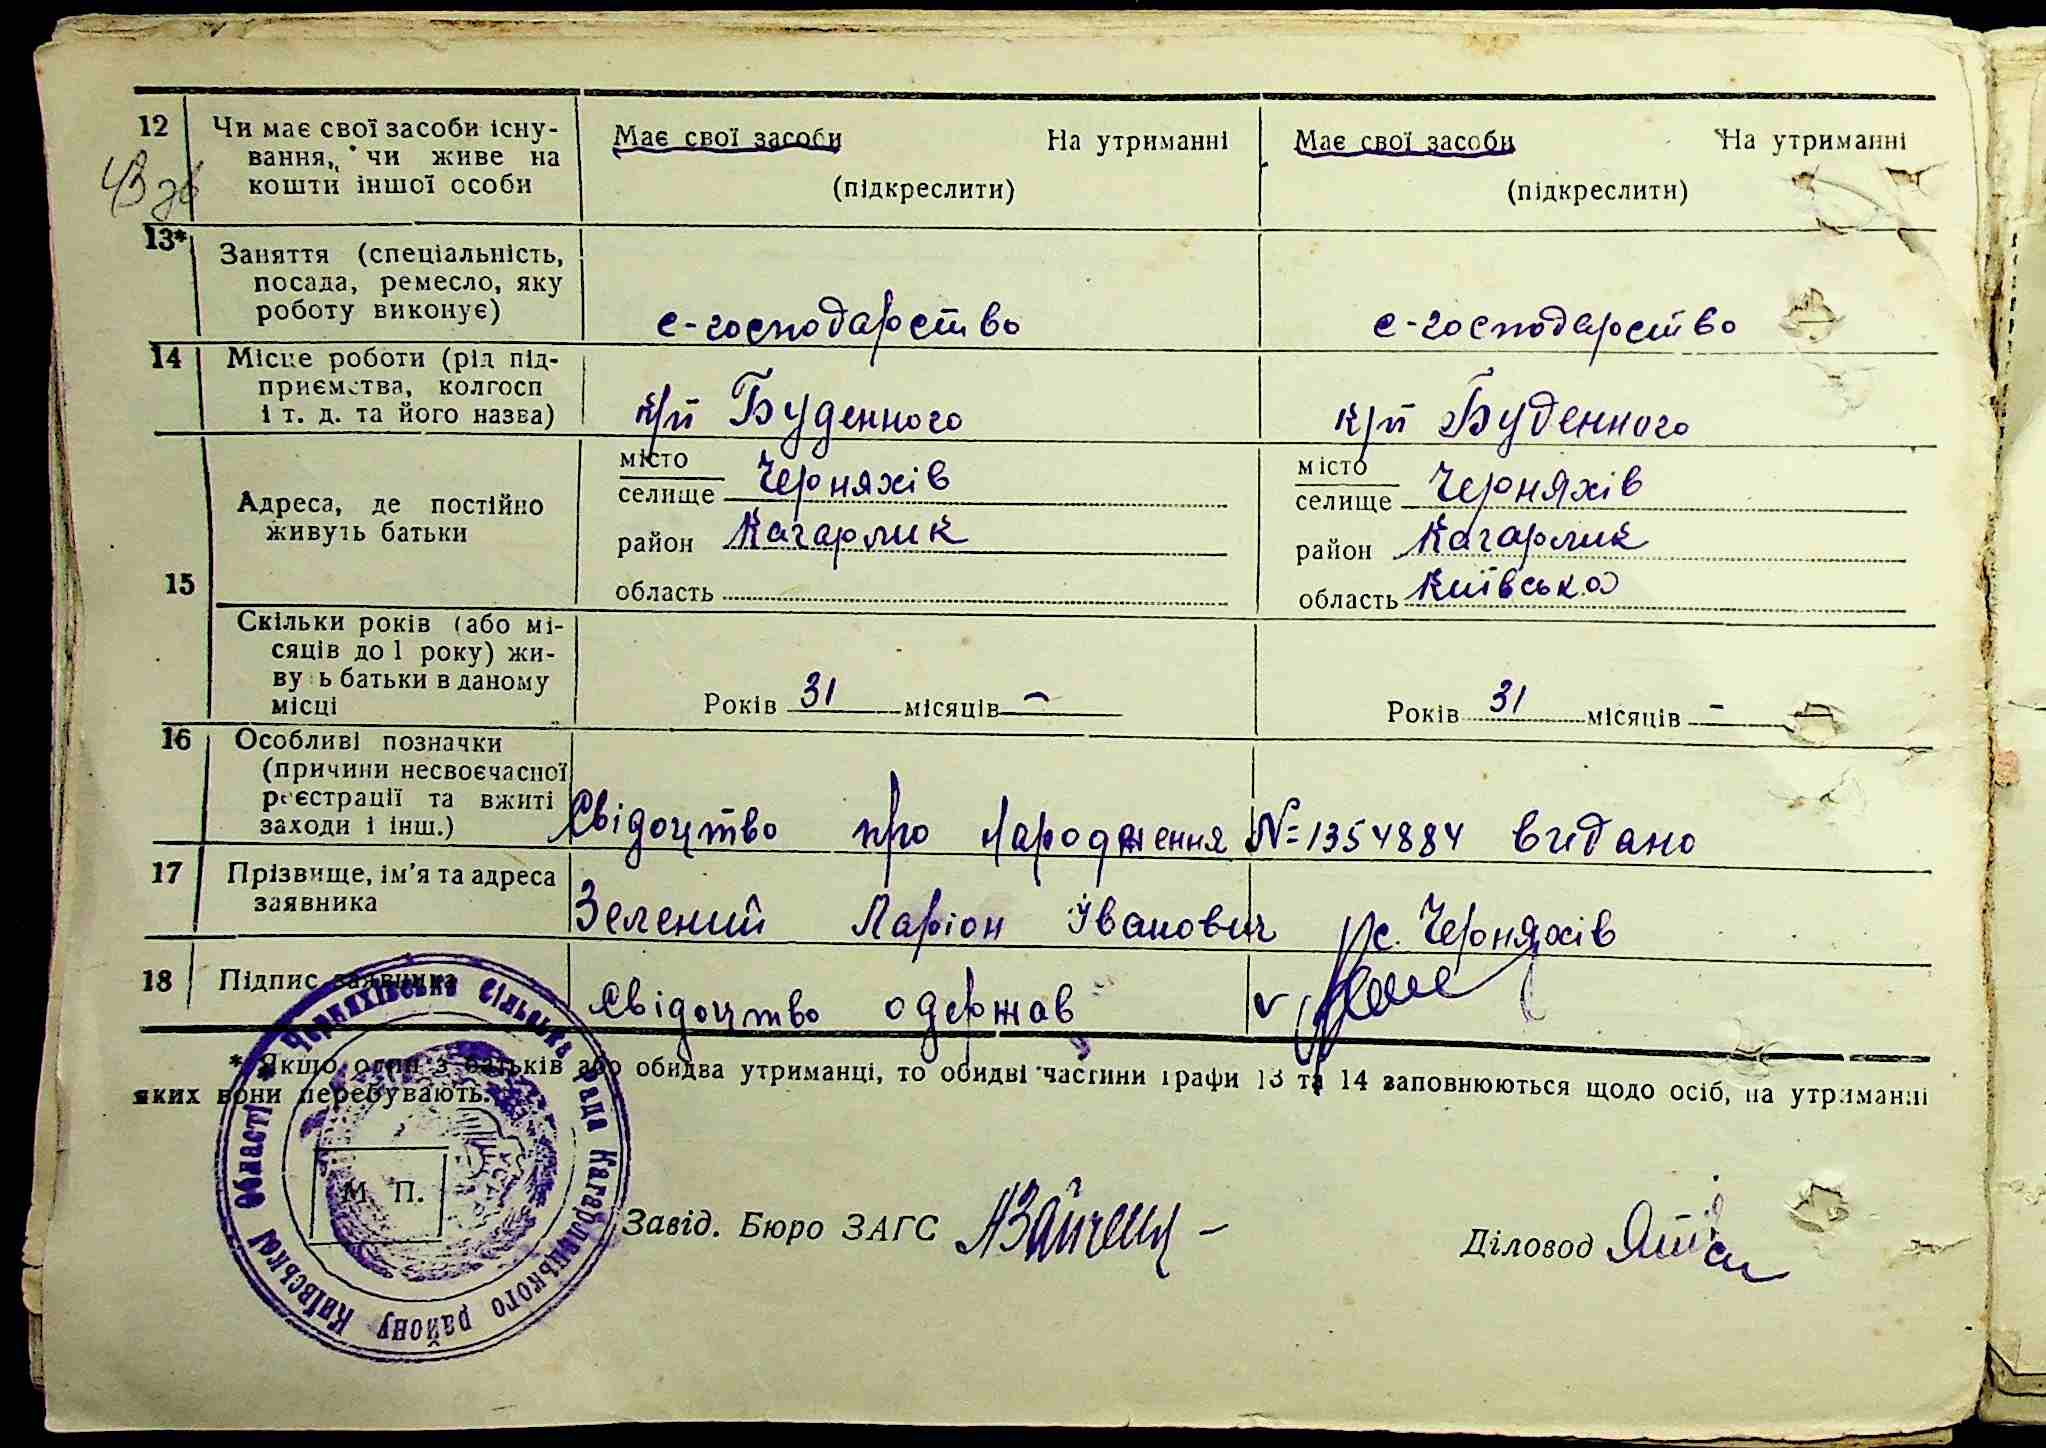 12 Чи має свої засоби існу-
вання, чи живе на
кошти іншої особи
Має свої засоби На утриманні
(підкреслити)
Має свої засоби На утриманні
(підкреслити)
13* Заняття (спеціальність,
посада, ремесло, яку
роботу виконує)
с-господарство
с-господарство
14 Місце роботи (рід під-
приємства, колгосп
і т. д. та його назва)
к/п Буденного
к/п Буденного
15
Адреса, де постійно
живуть батьки
місто
селище Черняхів
район Кагарлик
область
місто
селище Черняхів
район Кагарлик
область Київська
Скільки років (або мі-
сяців до 1 року) жи-
вуть батьки в даному
місці
Років 31 місяців –
Років 31 місяців –
16 Особливі позначки
(причини несвоєчасної
реєстрації та вжиті
заходи і інш.)
Свідоцтво про народження N=1354884 видано
17 Прізвище, ім'я та адреса
заявника
Зелений Ларіон Іванович с. Черняхів
18 Підпис заявника
Свідоцтво одержав v
* Якщо один з батьків або обидва утриманці, то обидві частини графи 13 та 14 заповнюються щодо осіб, на утриманні
яких вони перебувають.
Черняхівська Сільська Рада Кагарлицького району Київської Області
М. П.
Завід. Бюро ЗАГС
Діловод